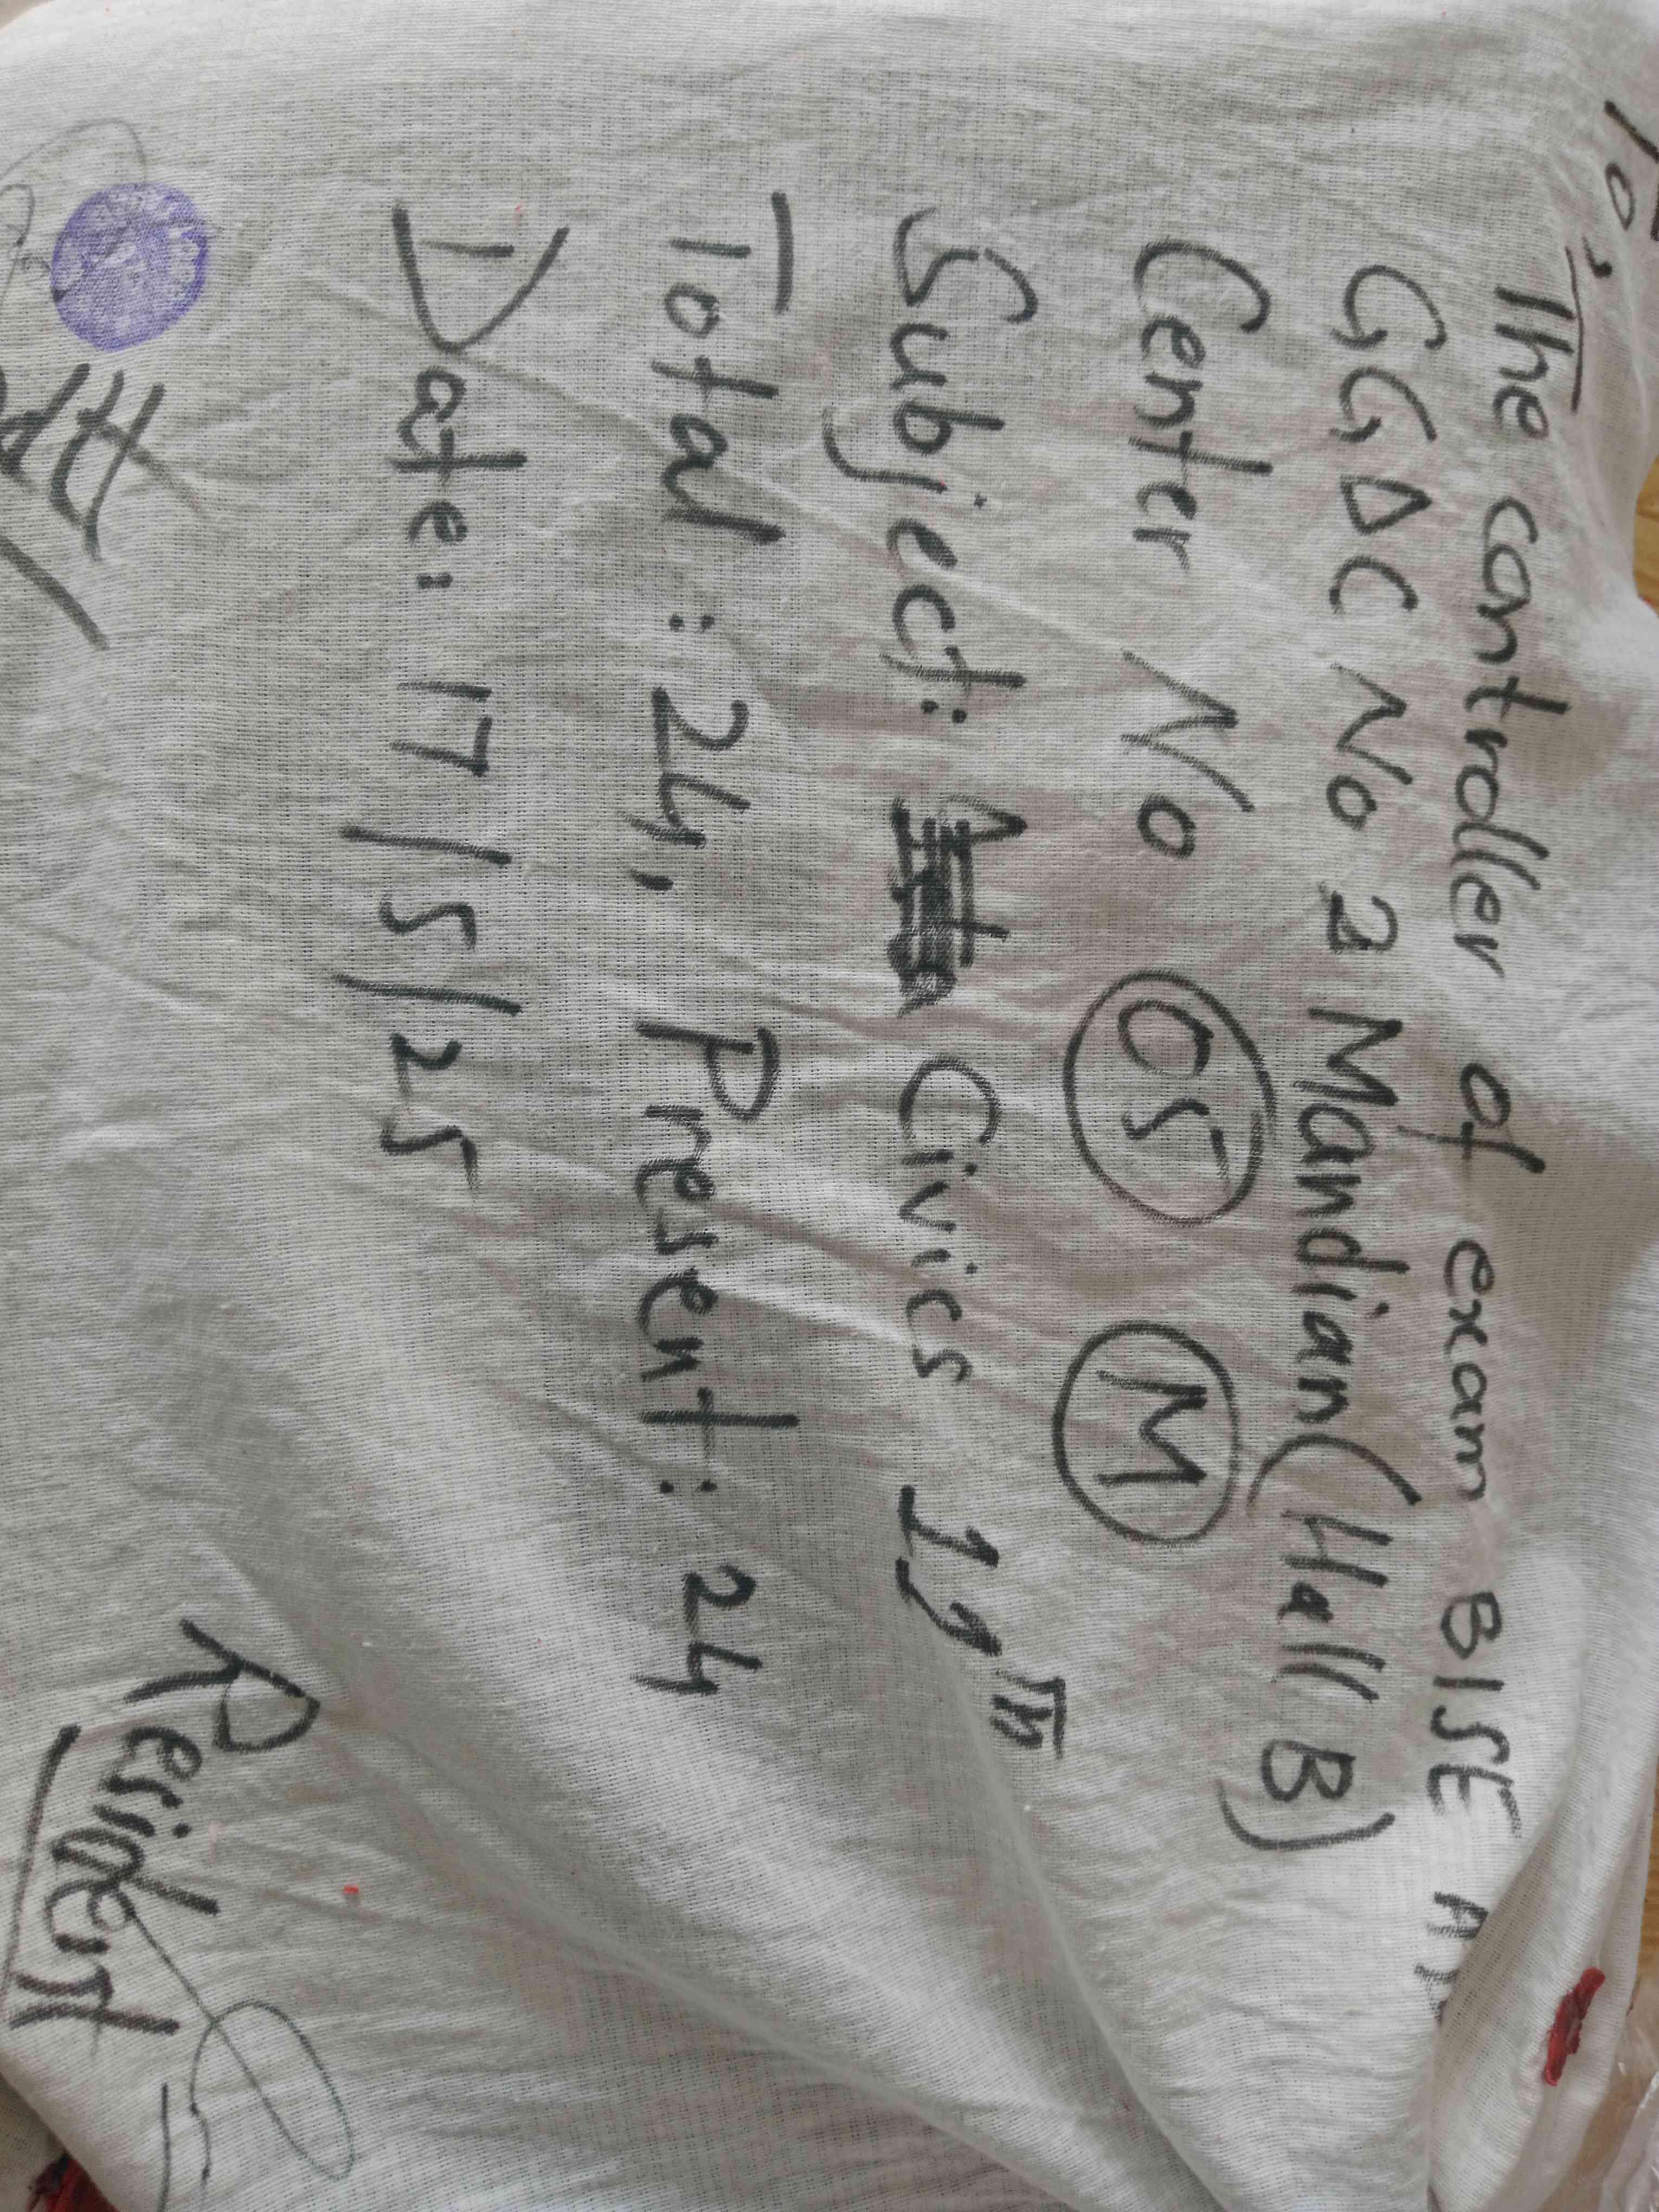 To,
The controller of exam BISE
GGDC No 2 Mandian (Hall B)
Center No 05 M
Subject: Civics 11th
Total : 24, Present: 24
Date: 17/5/25